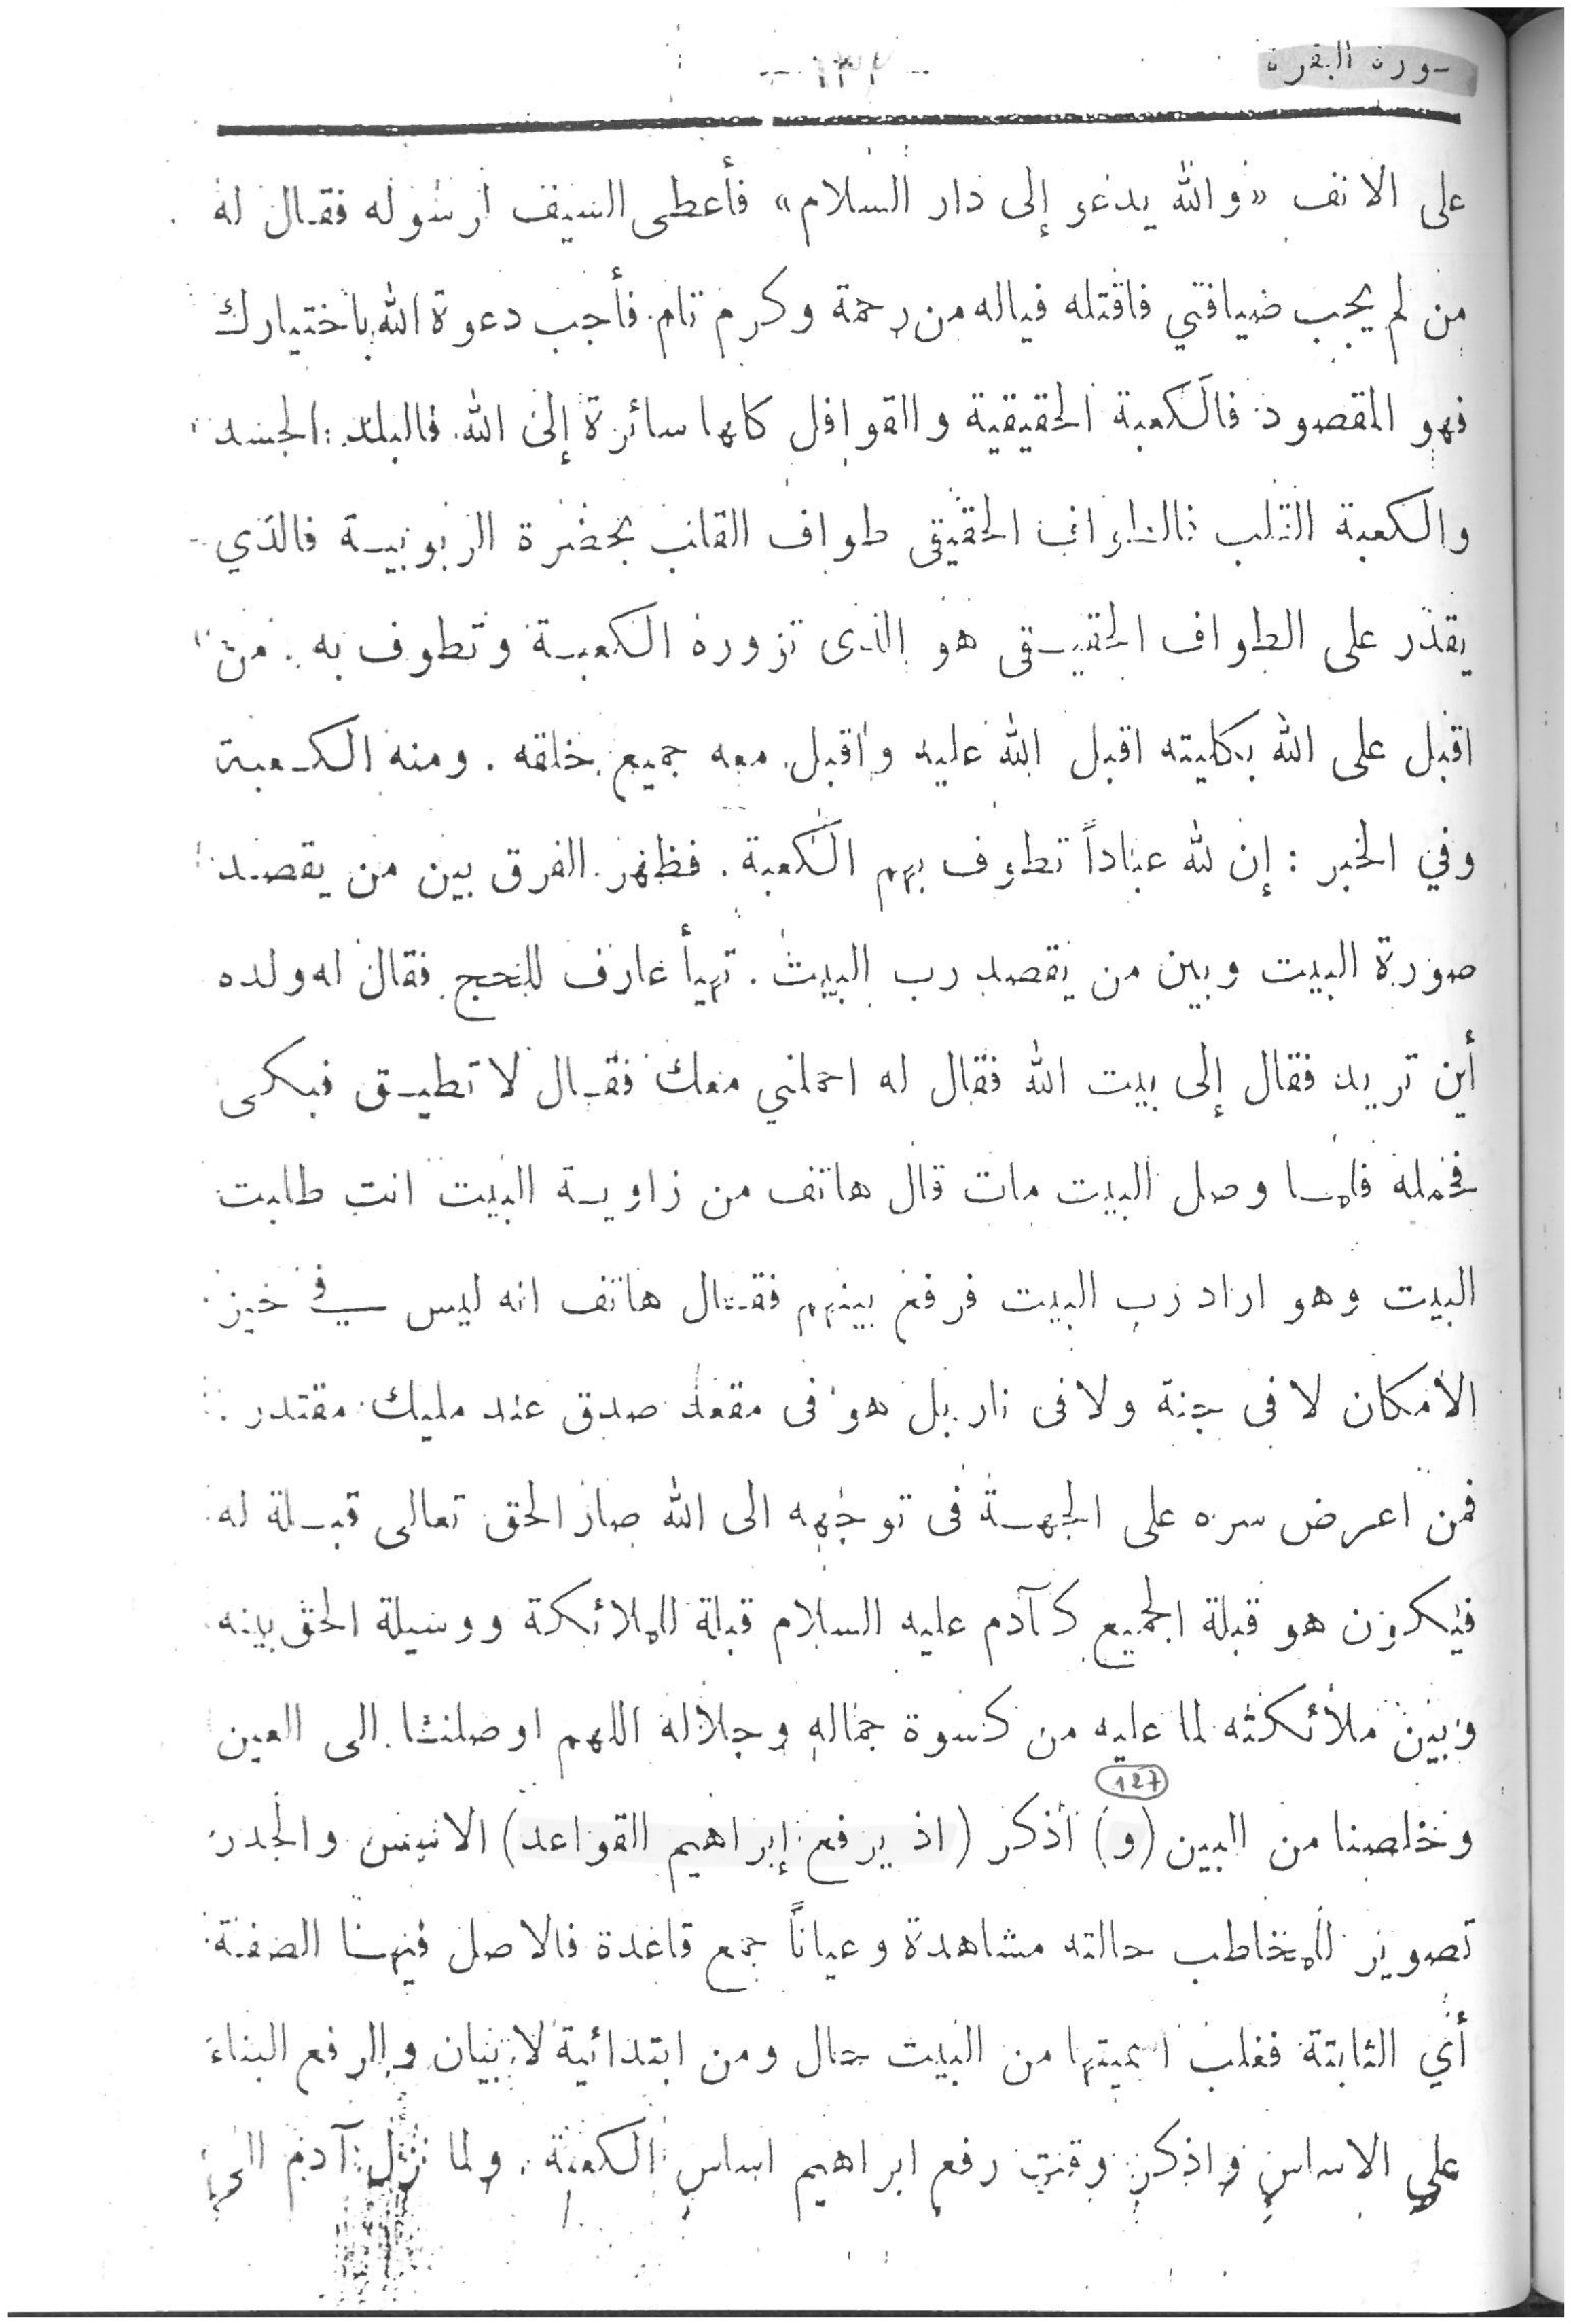 سورة البقرة
- ١٣٢ -
على الانف «والله يدعو إلى دار السلام» فأعطى السيف لرسوله فقال له
من لم يجب ضيافتي فاقتله فياله من رحمة وكرم تام. فأجب دعوة الله باختيارك
فهو المقصود فالكعبة الحقيقية والقوافل كلها سائرة إلى الله. فالبلد: الجسد
والكعبة القلب فالطواف الحقيقى طواف القلب بحضرة الربوبية فالذي
يقدر على الطواف الحقيقى هو الذى تزوره الكعبة وتطوف به. من
اقبل على الله بكليته اقبل الله عليه واقبل معه جميع خلقه. ومنه الكعبة
وفي الخبر : إن لله عباداً تطوف بهم الكعبة. فظهر الفرق بين من يقصد
صورة البيت وبين من يقصد رب البيت. تهيأ عارف للحج فقال له ولده
أين تريد فقال إلى بيت الله فقال له احملني معك فقال لا تطيق فبكى
فحمله فلما وصل البيت مات قال هاتف من زاوية البيت انت طلبت
البيت وهو اراد رب البيت فرفع بينهم فقال هاتف انه ليس في حيز
الامكان لا فى جنة ولا فى نار بل هو فى مقعد صدق عند مليك مقتدر.
فمن اعرض سره على الجهة فى توجهه الى الله صار الحق تعالى قبلة له
فيكون هو قبلة الجميع كآدم عليه السلام قبلة للملائكة ووسيلة الحق بينه
وبين ملائكته لما عليه من كسوة جماله وجلاله اللهم اوصلنا الى العين
127
وخلصنا من البين (و) أذكر (اذ يرفع إبراهيم القواعد) الاسس والجدر
تصوير للمخاطب حالته مشاهدة وعياناً جمع قاعدة فالاصل فيها الصفة
أي الثابتة فغلب اسميتها من البيت حال ومن ابتدائية لا بيان والرفع البناء
على الاساس واذكر وقت رفع ابراهيم اساس الكعبة. ولما نزل آدم الى